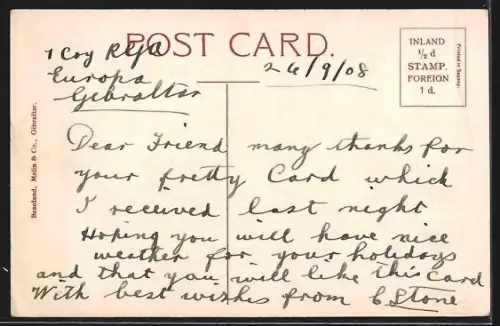 POST CARD.
1 Coy RGA
Europa
Gibraltar
26/9/08
INLAND
½ d
STAMP.
FOREIGN
1 d.
Printed in Saxony.
Beanland, Malin & Co., Gibraltar.
Dear Friend many thanks for
your pretty Card which
I received last night
Hoping you will have nice
weather for your holidays
and that you will like this Card
With best wishes from C Stone